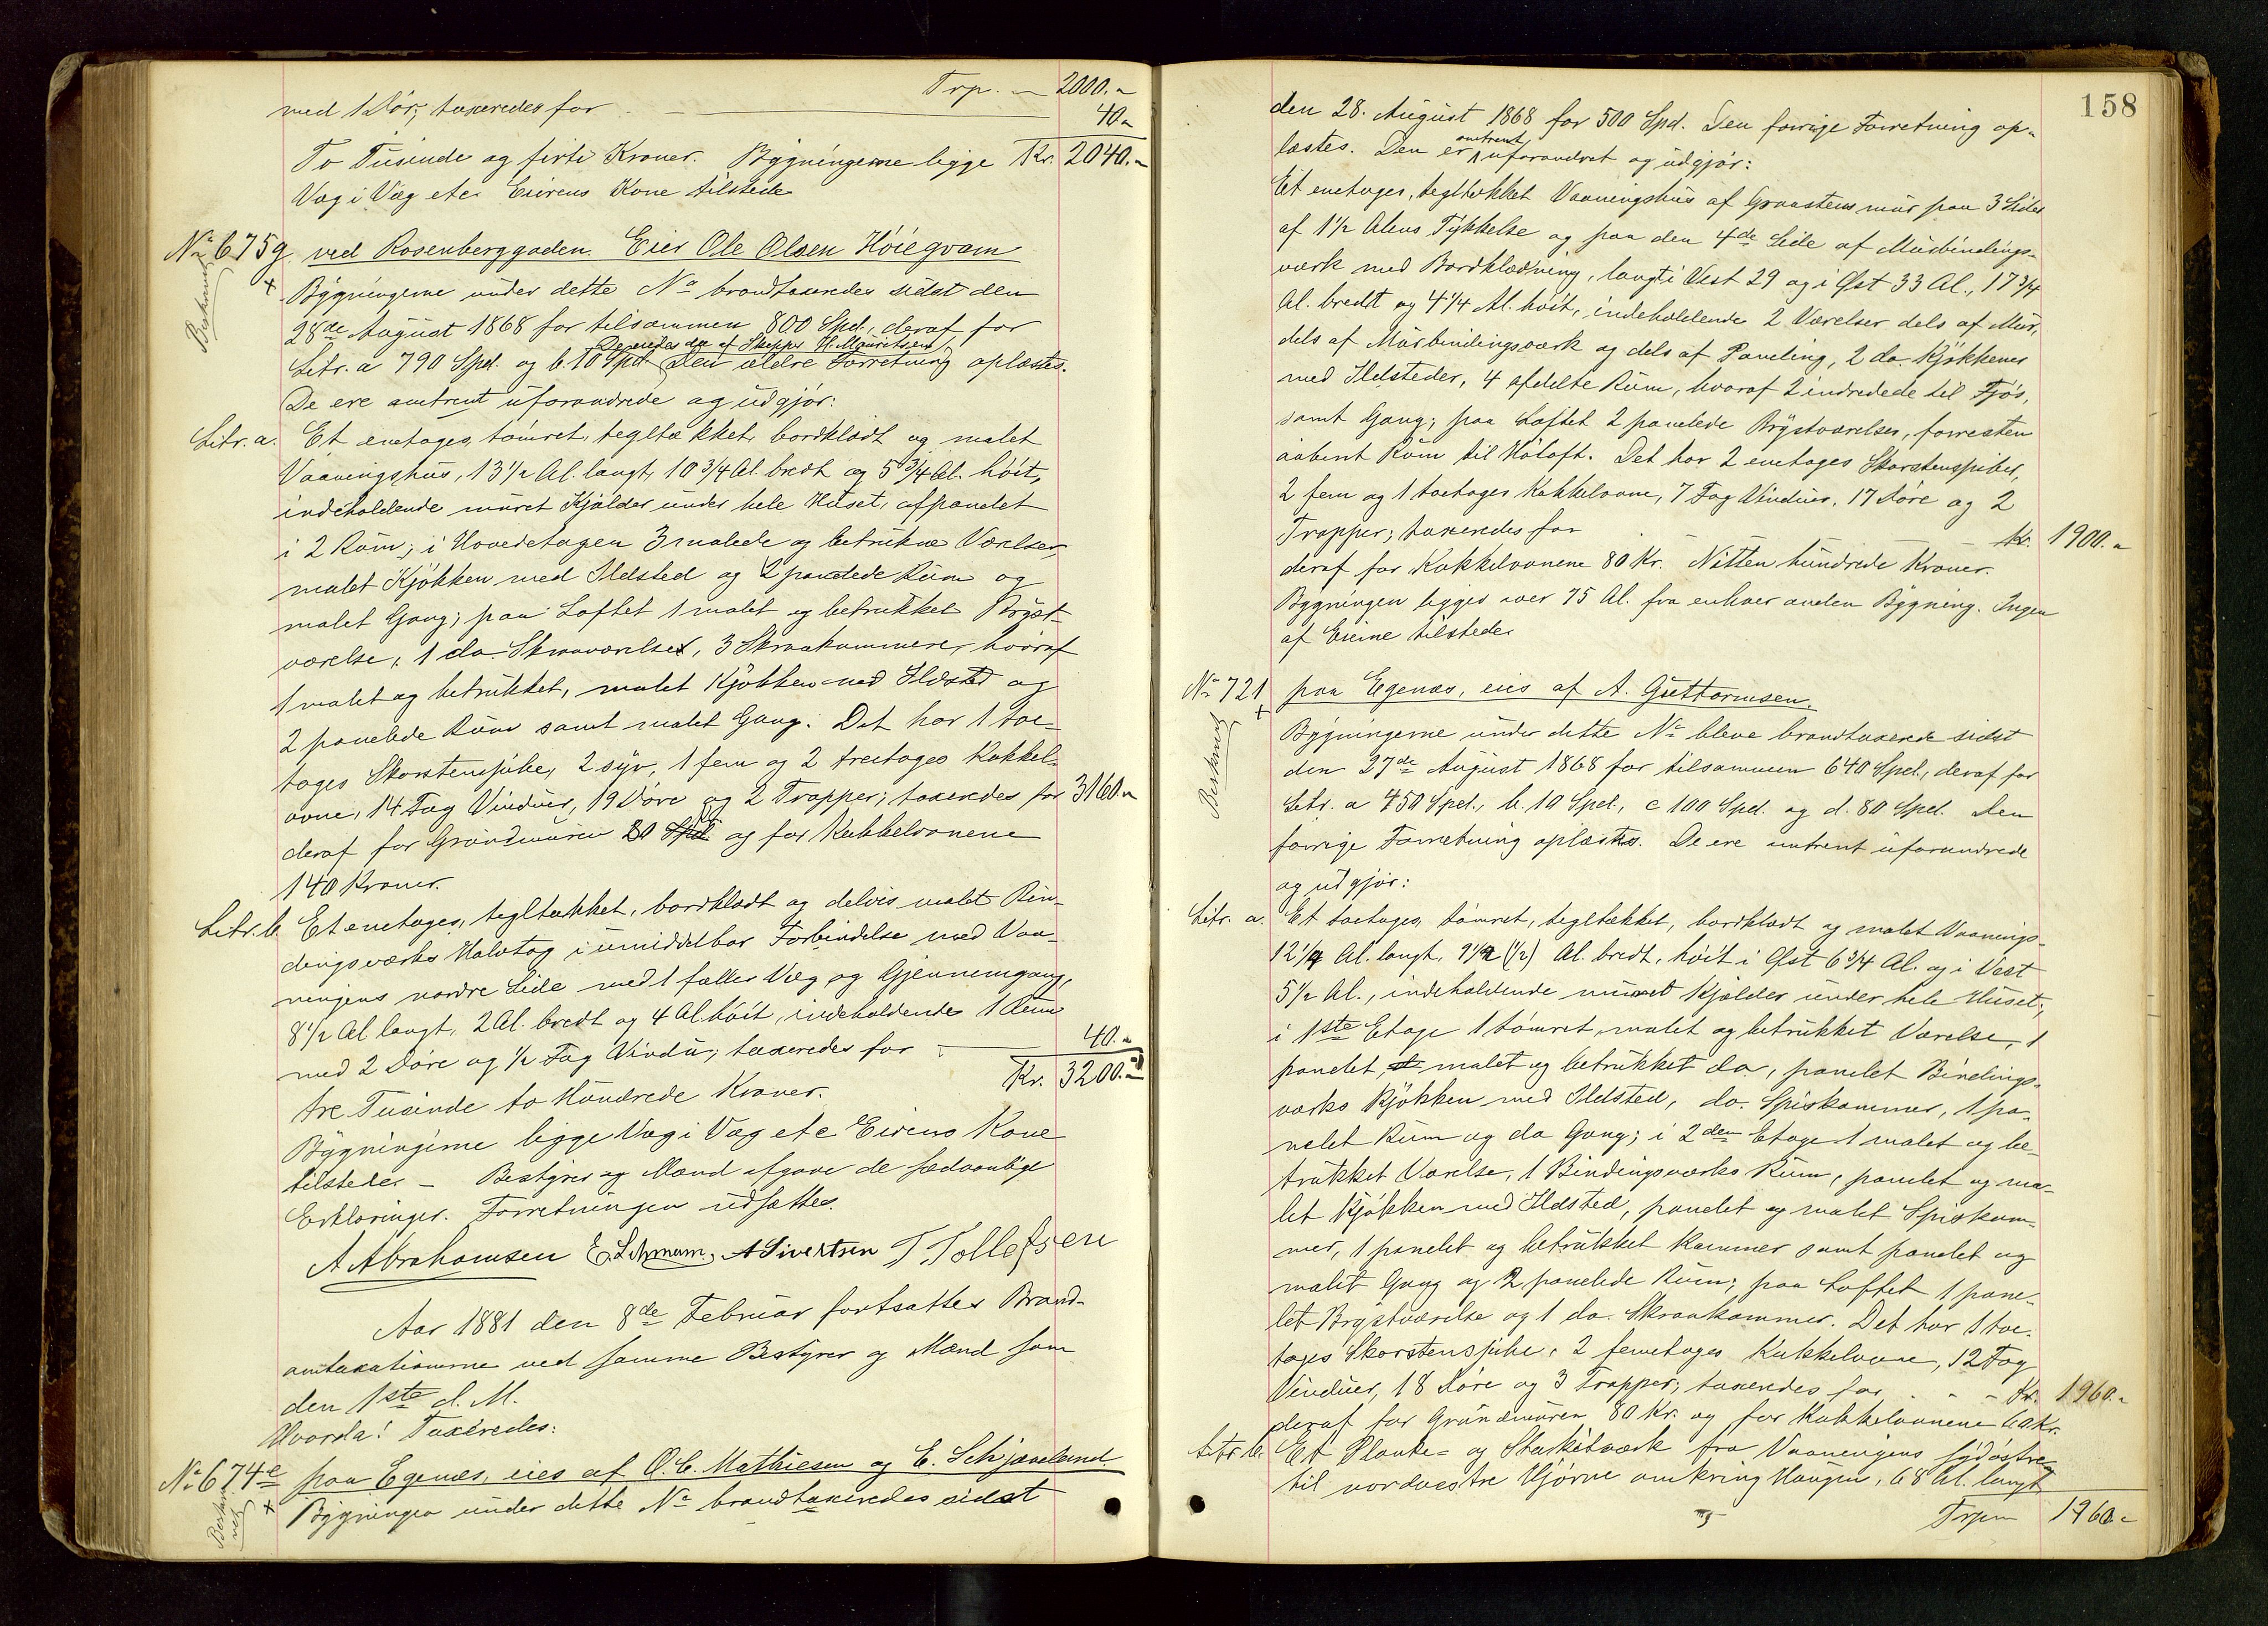 Trp. — 2000.-
med 1 Dør; taxeredes for — 40.-
To Tusinde og firti Kroner. Bygningerne ligge Kr. 2040.-
Væg i Væg etc. Eierens Kone tilstede
No 675g ved Rosenberggaden. Eier Ole Olsen Höiegvam
Bygningerne under dette No brandtaxeredes sidst den
28de August 1868 for tilsammen 800 Spd., deraf for
De eiedes da af Skipper H. Mauritsen
Litr. a 790 Spd. og b. 10 Spd. Den ældre Forretning oplæstes.
De ere omtrent uforandrede og udgjör:
Litr. a. Et enetages, tömret, tegltækket, bordklædt og malet
Vaaningshus, 13 1/2 Al. langt, 10 3/4 Al. bredt og 5 3/4 Al. höit,
indeholdende muret Kjælder under hele Huset, afpanelet
i 2 Rum; i Hovedetagen 3 malede og betrukne Værelser,
malet Kjökken med Ildsted og 2 panelede Rum og
malet Gang; paa Loftet 1 malet og betrukket Bryst-
værelse, 1 do. Skraaværelse, 3 Skraakammere, hvoraf
1 malet og betrukket, malet Kjökken med Ildsted og
2 panelede Rum samt malet Gang. Det har 1 toe-
tages Skorstenspibe, 2 syv, 1 fem og 2 treetages Kakkel-
ovne, 14 Fag Vinduer, 19 Döre og 2 Trapper; taxeredes for 3160.-
deraf for Grundmuren 80 Spd. og for Kakkelovnene
140 Kroner.
Litr. b. Et enetages, tegltækket, bordklædt og delvis malet Bin-
dingsværks Halvtag i umiddelbar Forbindelse med Vaa-
ningens nordre Side med 1 fælles Væg og Gjennemgang,
8 1/2 Al langt, 2 Al. bredt og 4 Al. höit, indeholdende 1 Rum
med 2 Döre og 1/2 Fag Vindu; taxeredes for — 40.-
tre Tusinde to Hundrede Kroner. Kr. 3200.-
Bygningerne ligge Væg i Væg etc Eierens Kone
tilstede. — Bestyrer og Mænd afgave de sædvanlige
Erklæringer. Forretningen udsattes.
A Abrahamsen E. Lehmann. A Sivertsen T. Tollefsen
Aar 1881 den 8de Februar fortsattes Brand-
omtaxationerne ved samme Bestyrer og Mænd som
den 1ste d. M.
Hvorda! Taxeredes:
No 674e paa Egenæs, eies af O. C. Mathiesen og E. Schjævelund
Bygningen under dette No brandtaxeredes sidst
158
den 28. August 1868 for 500 Spd. Den forrige Forretning op-
læstes. Den er omtrent uforandret og udgjör:
Et enetages, tegltækket Vaaningshus af Graastensmur paa 3 Sider
af 1 1/2 Alens Tykkelse og paa den 4de Side af Murbindings-
værk med Bordklædning, langt i Vest 29 og i Öst 33 Al., 17 3/4
Al. bredt og 4 1/4 Al. höit, indeholdende 2 Værelser dels af Mur,
dels af Murbindingsværk og dels af Paneling, 2 do. Kjökkener
med Ildsteder, 4 afdelte Rum, hvoraf 2 indredede til Fjös,
samt Gang; paa Loftet 2 panelede Brystværelser, forresten
aabent Rum til Höloft. Det har 2 enetages Skorstenspiber,
2 fem og 1 toetages Kakkelovne, 7 Fag Vinduer, 17 Döre og 2
Trapper; taxeredes for — Kr. 1900.-
deraf for Kakkelovnene 80 Kr. Nitten hundrede Kroner.
Bygningen ligger over 75 Al. fra enhver anden Bygning. Ingen
af Eierne tilstede.
No 721 paa Egenæs, eies af A. Guttormsen.
Bygningerne under dette No bleve brandtaxerede sidst
den 27de August 1868 for tilsammen 640 Spd., deraf for
Litr. a 450 Spd., b. 10 Spd., c 100 Spd. og d. 80 Spd. Den
forrige Forretning oplæstes. De ere omtrent uforandrede
og udgjör:
Litr. a. Et toetages, tömret, tegltækket, bordklædt og malet Vaanings-
12 1/4 Al. langt, 9 1/2 (1/2) Al. bredt, höit i Öst 6 3/4 Al. og i Vest
5 1/2 Al., indeholdende muret Kjælder under hele Huset;
i 1ste Etage 1 tömret, malet og betrukket Værelse, 1
panelet, malet og betrukket do., panelet Bindings-
værks Kjökken med Ildsted, do. Spiskammer, 1 pa-
nelet Rum og do Gang; i 2den Etage 1 malet og be-
trukket Værelse, 1 Bindingsværks Rum, panelet og ma-
let Kjökken med Ildsted, panelet og malet Spiskam-
mer, 1 panelet og betrukket Kammer samt panelet og
malet Gang og 2 panelede Rum; paa Loftet 1 pane-
let Brystværelse og 1 do. Skraakammer. Det har 1 toe-
tages Skorstenspibe, 2 femetages Kakkelovne, 12 Fag
Vinduer, 18 Döre og 3 Trapper; taxeredes for - - Kr. 1960.-
deraf for Grundmuren 80 Kr. og for Kakkelovnene 60 Kr.
Litr b. Et Planke- og Stakitværk fra Vaaningens sydöstre
til nordvestre Hjörne omkring Haugen, 68 Al. langt
Trp 1960.-